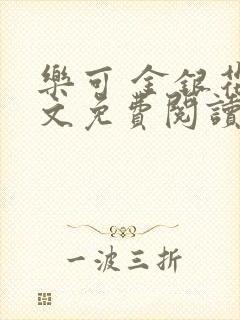 樂可 金銀花
文免費閱讀
一波三折